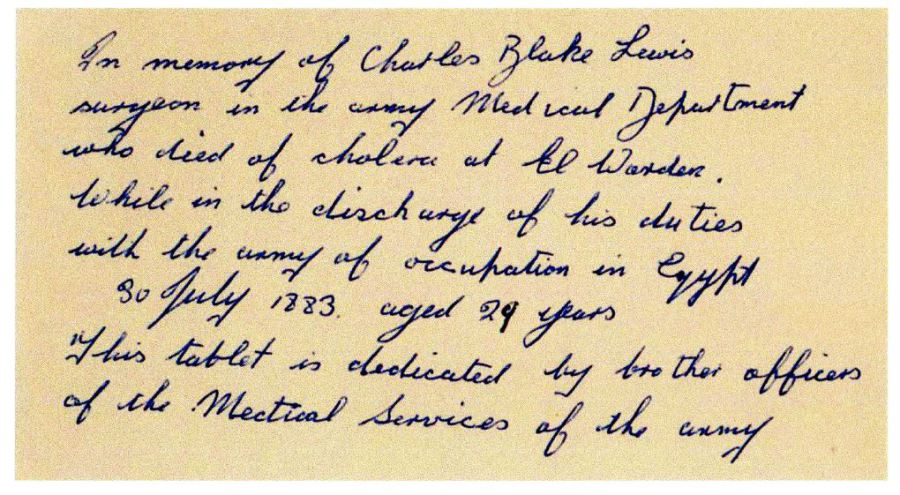 In memory of Charles Blake Lewis
surgeon in the army Medical Department
who died of cholera at El Warden.
While in the discharge of his duties
with the army of occupation in Egypt
30 July 1883. aged 29 years
This tablet is dedicated by brother officers
of the Medical Services of the army